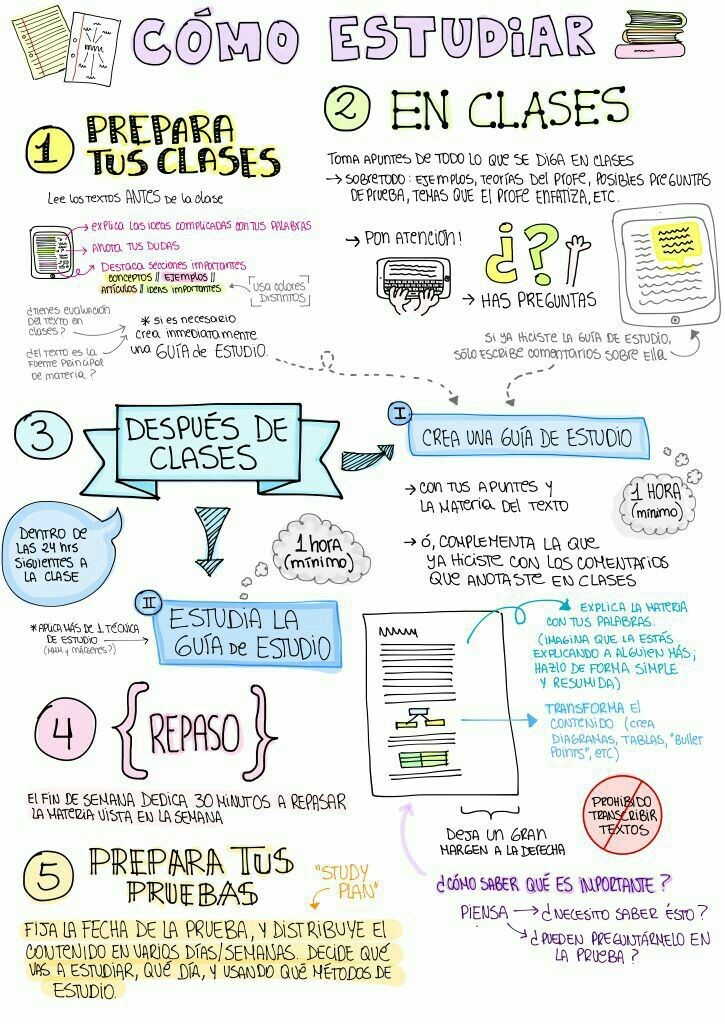 CÓMO ESTUDIAR
1 PREPARA
TUS CLASES
Lee los textos ANTES de la clase
→ explica las ideas complicadas con tus palabras
→ Anota tus dudas
→ Destaca secciones importantes
conceptos // ejemplos //
artículos // ideas importantes
usa colores
distintos
¿tienes evaluación
del texto en
clases?
¿el texto es la
fuente principal
de materia?
* si es necesario
crea inmediatamente
una GUÍA de ESTUDIO
2 EN CLASES
TOMA APUNTES DE TODO LO QUE SE DIGA EN CLASES
→ SOBRETODO: EJEMPLOS, TEORÍAS DEL PROFE, POSIBLES PREGUNTAS
DE PRUEBA, TEMAS QUE EL PROFE ENFATIZA, ETC.
→ PON ATENCIÓN!
¿?
→ HAS PREGUNTAS
SI YA HICISTE LA GUÍA DE ESTUDIO,
SÓLO ESCRIBE COMENTARIOS SOBRE ELLA
3 DESPUÉS DE
CLASES
DENTRO DE
LAS 24 hrs
SIGUIENTES A
LA CLASE
I CREA UNA GUÍA DE ESTUDIO
1 HORA
(mínimo)
→ CON TUS APUNTES Y
LA MATERIA DEL TEXTO
→ Ó, COMPLEMENTA LA QUE
YA HICISTE CON LOS COMENTARIOS
QUE ANOTASTE EN CLASES
1 hora
(mínimo)
II ESTUDIA LA
GUÍA de ESTUDIO
*APLICA MÁS DE 1 TÉCNICA
DE ESTUDIO
EXPLICA LA MATERIA
CON TUS PALABRAS.
(IMAGINA QUE LA ESTÁS
EXPLICANDO A ALGUIEN MÁS;
HAZLO DE FORMA SIMPLE
Y RESUMIDA)
TRANSFORMA EL
CONTENIDO (crea
DIAGRAMAS, TABLAS, "BULLET
POINTS", ETC)
DEJA UN GRAN
MARGEN A LA DERECHA
PROHIBIDO
TRANSCRIBIR
TEXTOS
¿CÓMO SABER QUÉ ES IMPORTANTE?
PIENSA → ¿NECESITO SABER ÉSTO?
→ ¿PUEDEN PREGUNTÁRMELO EN
LA PRUEBA?
4 {REPASO}
El FIN DE SEMANA DEDICA 30 MINUTOS A REPASAR
LA MATERIA VISTA EN LA SEMANA
5 PREPARA TUS
PRUEBAS
"STUDY
PLAN"
FIJA LA FECHA DE LA PRUEBA, Y DISTRIBUYE EL
CONTENIDO EN VARIOS DÍAS/SEMANAS. DECIDE QUÉ
VAS A ESTUDIAR, QUÉ DÍA, Y USANDO QUÉ MÉTODOS DE
ESTUDIO.